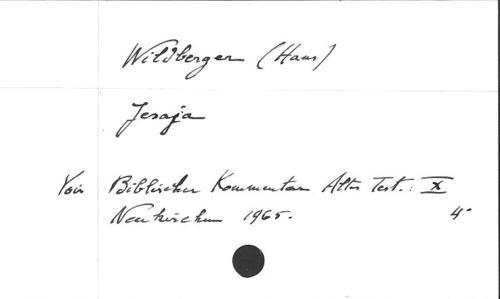 Wildberger (Hans)
Jesaja
Voir Biblischer Kommentar Altes Test.: X
Neukirchen 1965.
4°